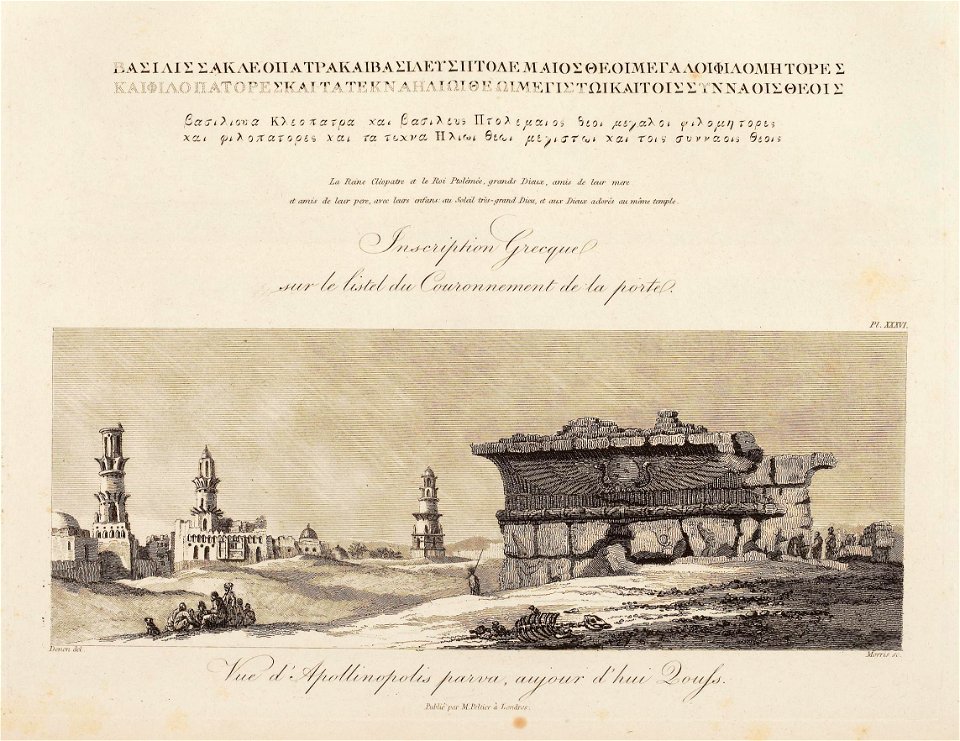 ΒΑΣΙΛΙΣΣΑΚΛΕΟΠΑΤΡΑΚΑΙΒΑΣΙΛΕΥΣΠΤΟΛΕΜΑΙΟΣΘΕΟΙΜΕΓΑΛΟΙΦΙΛΟΜΗΤΟΡΕΣ
ΚΑΙΦΙΛΟΠΑΤΟΡΕΣΚΑΙΤΑΤΕΚΝΑΗΛΙΩΙΘΕΩΙΜΕΓΙΣΤΩΙΚΑΙΤΟΙΣΣΥΝΝΑΟΙΣΘΕΟΙΣ
βασιλισσα Κλεοπατρα και βασιλευς Πτολεμαιος θεοι μεγαλοι φιλομητορες
και φιλοπατορες και τα τεκνα Ηλιωι θεωι μεγιστωι και τοις συνναοις θεοις
La Reine Cléopatre et le Roi Ptolémée, grands Dieux, amis de leur mere
et amis de leur pere, avec leurs enfans: au Soleil très-grand Dieu, et aux Dieux adorés au même temple.
Inscription Grecque
sur le listel du Couronnement de la porte.
Pl. XXXVI.
Denon del.
Morris sc.
Vue d'Apollinopolis parva, aujour d'hui Qouss.
Publié par M. Peltier à Londres.